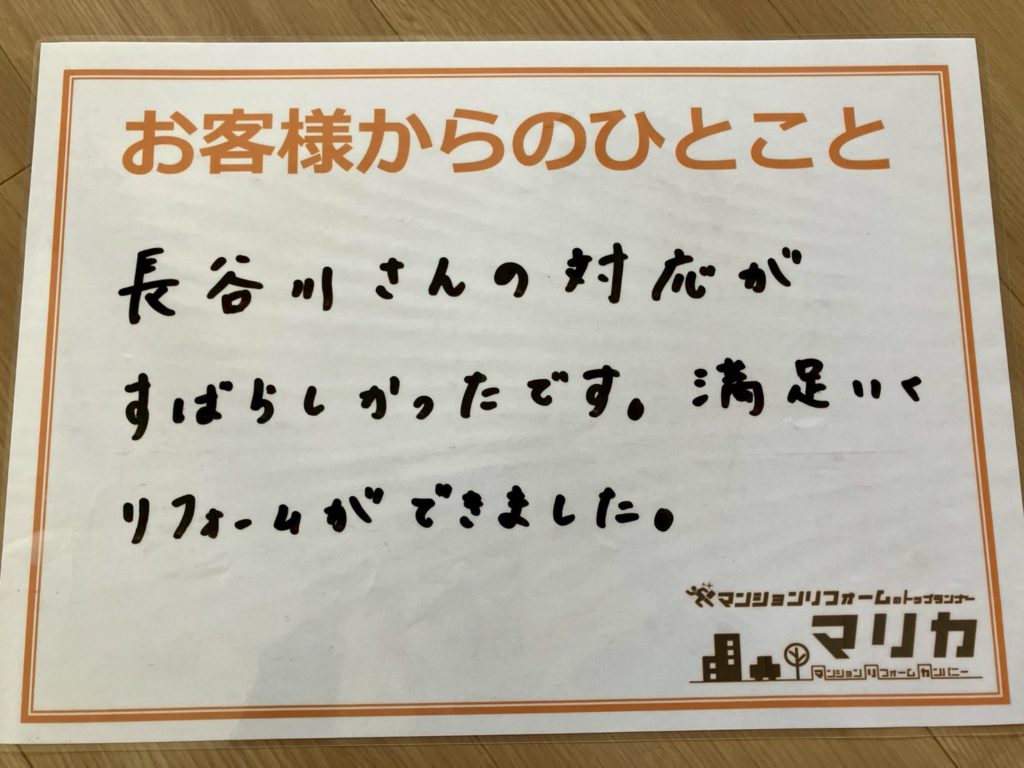 お客様からのひとこと
長谷川さんの対応が
すばらしかったです。満足いく
リフォームができました。
マンションリフォームのトップランナー
マリカ
マンションリフォームカンパニー